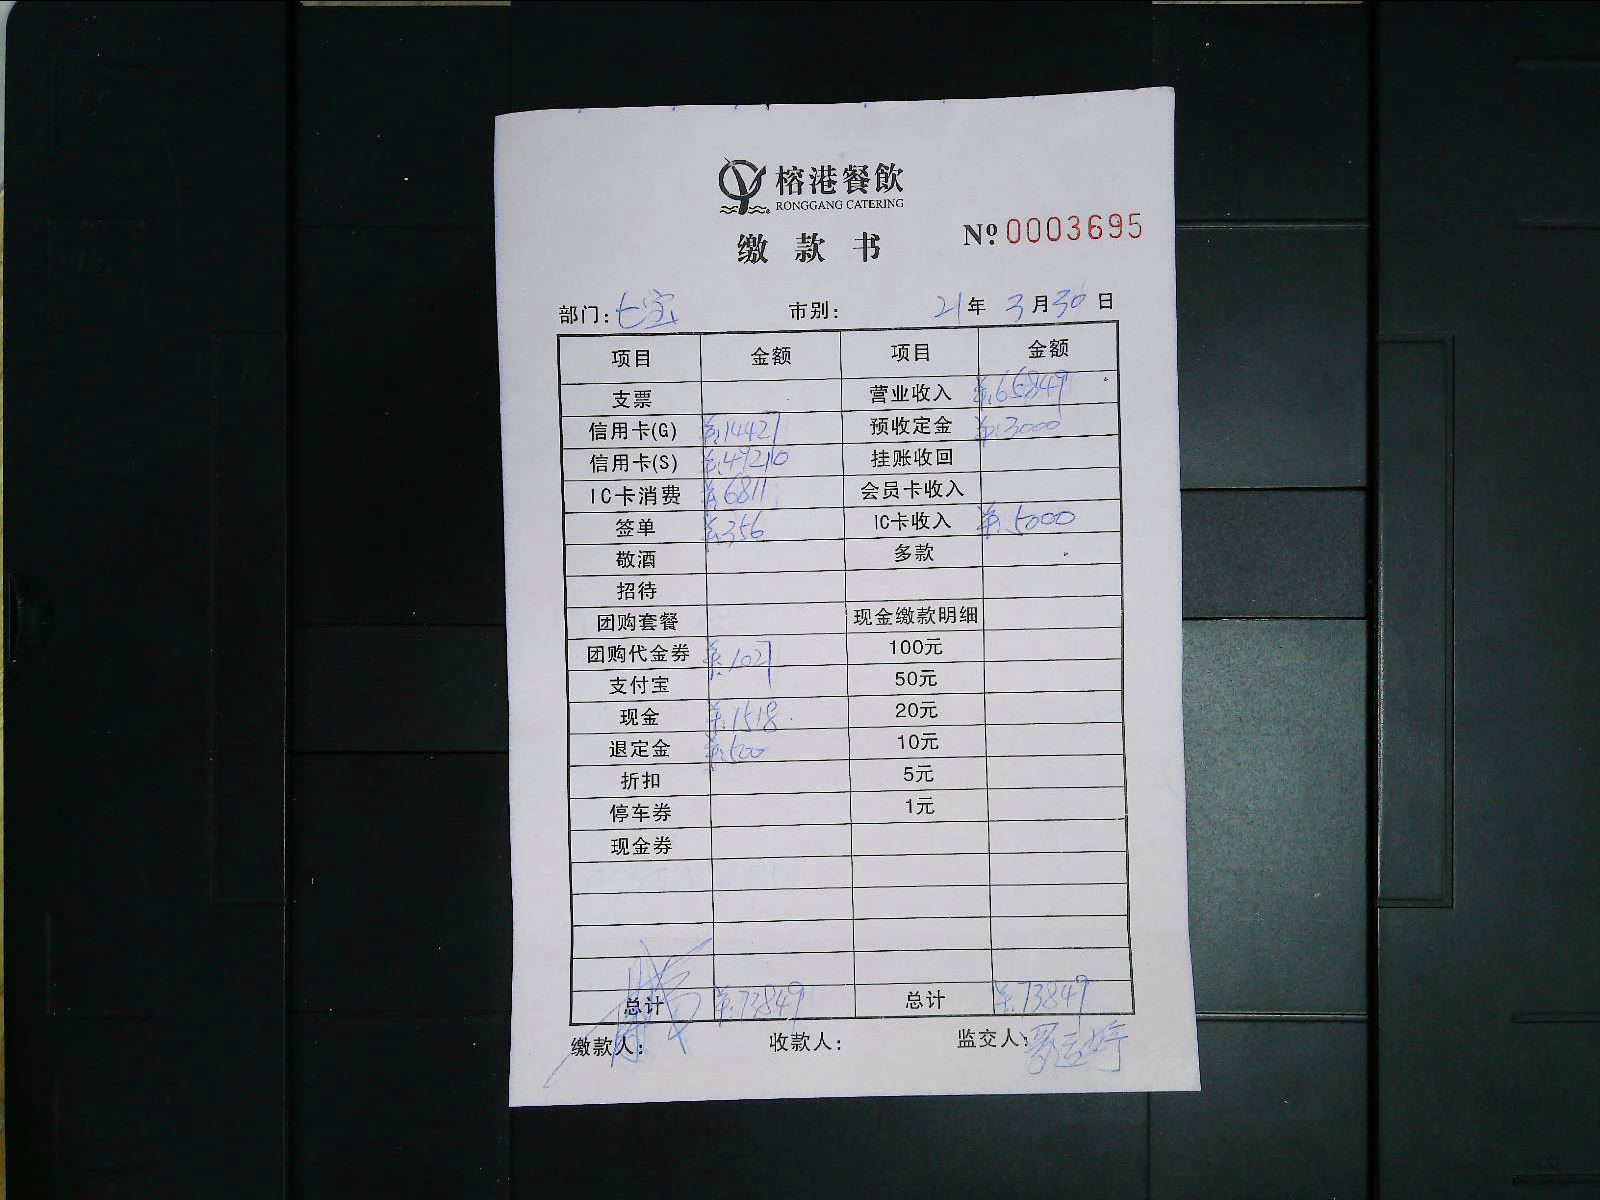 榕港餐飲
RONGGANG CATERING
缴款书
№ 0003695
部门: 七宝 市别: 21年 3月30日
项目 金额 项目 金额
支票 营业收入 ¥:65849
信用卡(G) ¥:14427 预收定金 ¥:3000
信用卡(S) ¥:49210 挂账收回
IC卡消费 ¥:6811 会员卡收入
签单 ¥:356 IC卡收入 ¥:5000
敬酒 多款
招待
团购套餐 现金缴款明细
团购代金券 ¥:1027 100元
支付宝 50元
现金 ¥:1518 20元
退定金 ¥:500 10元
折扣 5元
停车券 1元
现金券
总计 ¥:73849 总计 ¥:73849
缴款人: 收款人: 监交人: